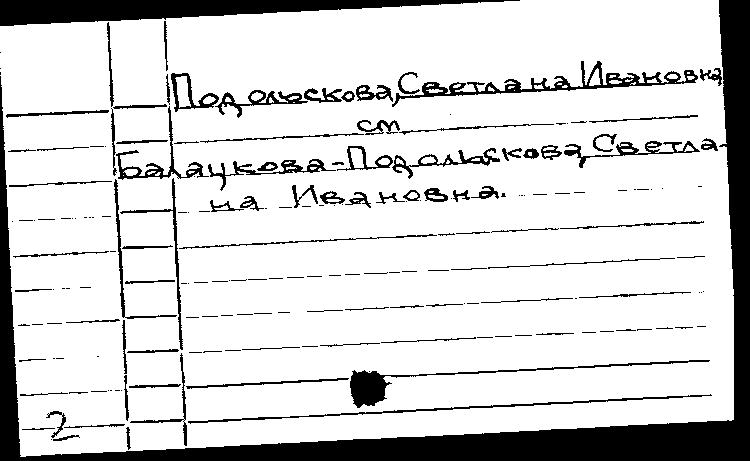 Подольскова, Светлана Ивановна
см.
Балацкова-Подольскова, Светла-
на Ивановна.
2